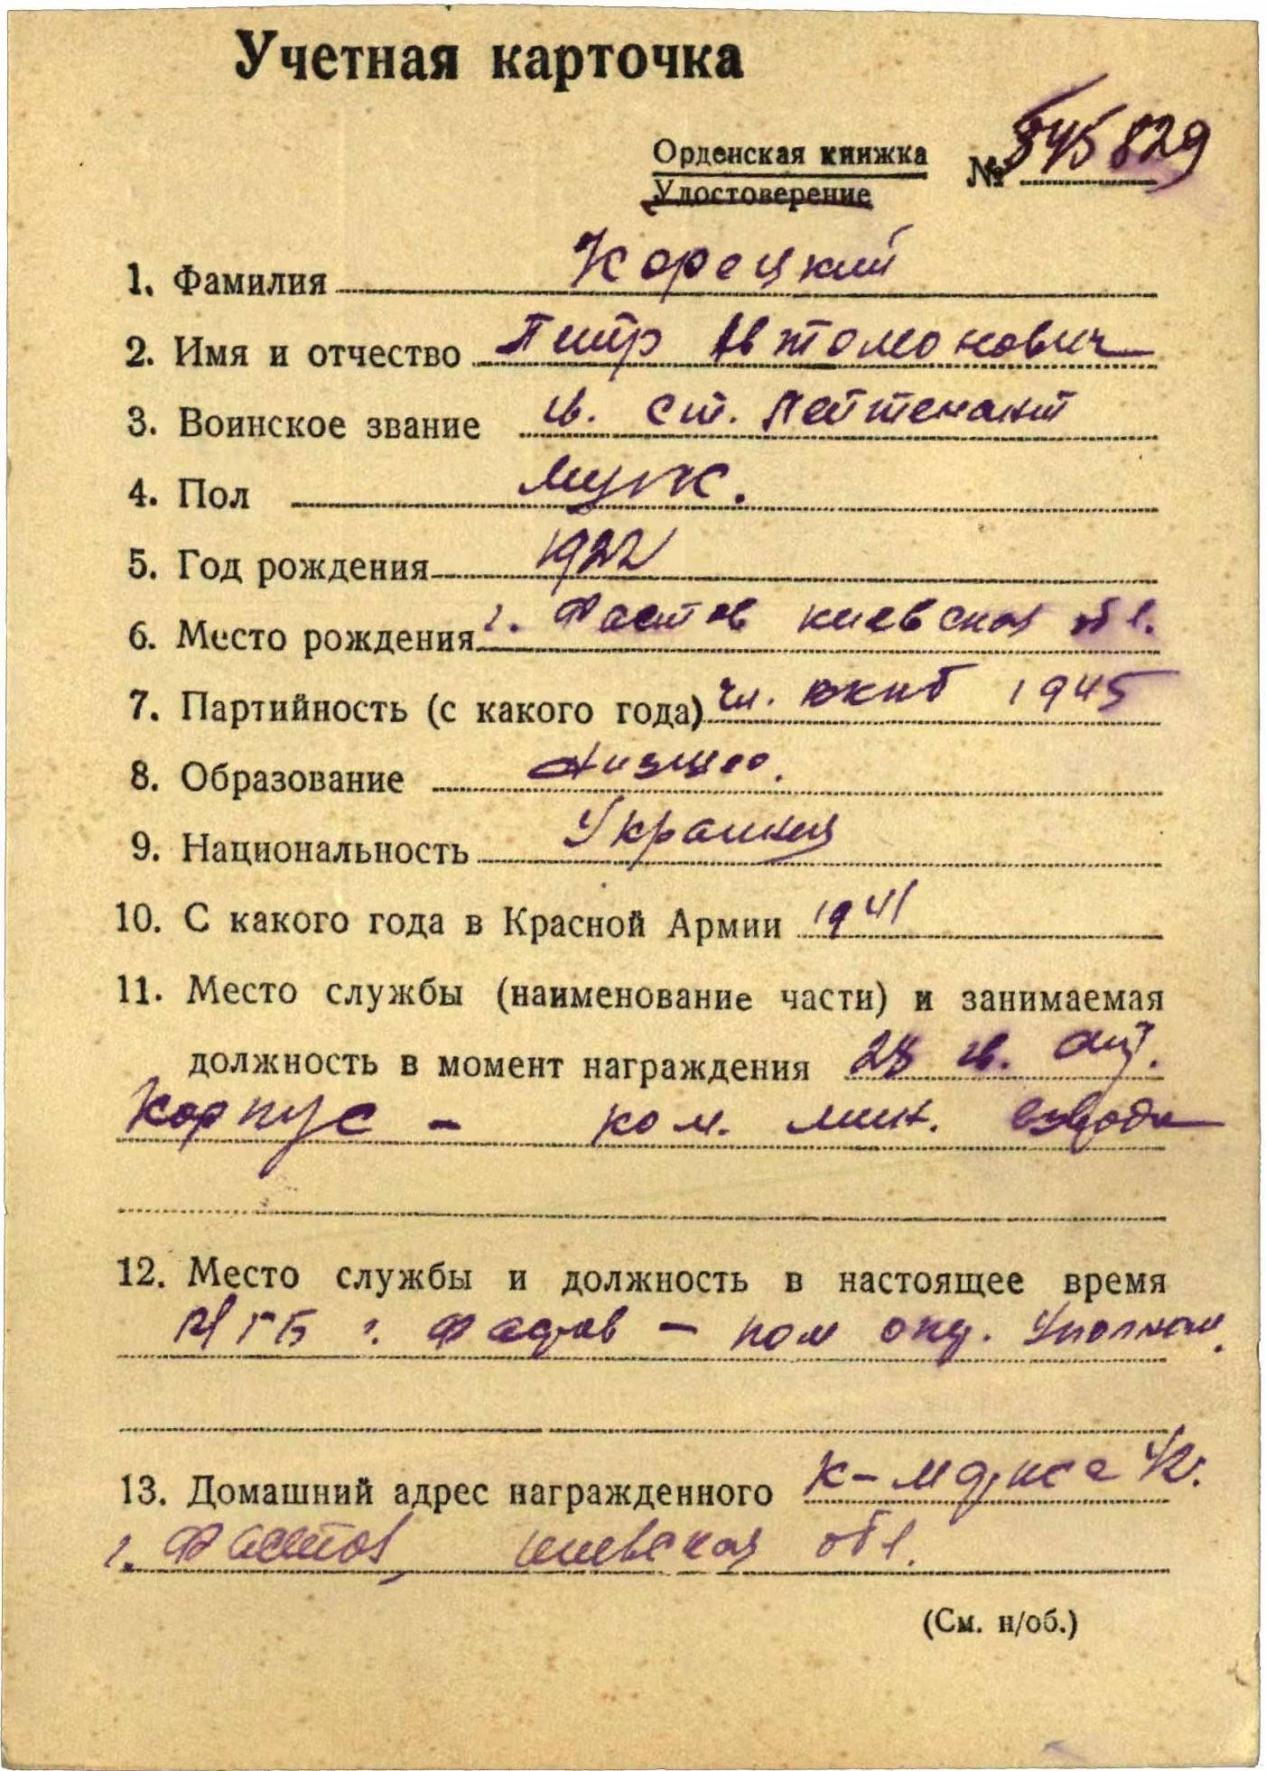 Учетная карточка
Орденская книжка
Удостоверение
№ 545829
1. Фамилия Корецкий
2. Имя и отчество Петр Автомонович
3. Воинское звание гв. ст. лейтенант
4. Пол муж.
5. Год рождения 1922
6. Место рождения г. Фастов киевская обл.
7. Партийность (с какого года) чл. вкпб 1945
8. Образование низшее.
9. Национальность Украинец
10. С какого года в Красной Армии 1941
11. Место службы (наименование части) и занимаемая
должность в момент награждения 28 гв.
Корпус - ком. мин. взвода
12. Место службы и должность в настоящее время
МГБ г. Фастов - пом опер. Уполном.
13. Домашний адрес награжденного
г. Фастов, киевская обл.
(См. н/об.)